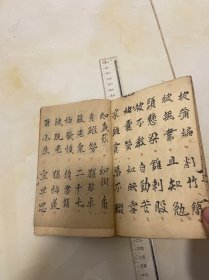 披蒲編 削竹簡
彼無書 且知勉
頭懸梁 錐刺股
彼不教 自勤苦
如囊螢 如映雪
家雖貧 學不輟
如負薪 如掛角
身雖勞 猶若卓
蘇老泉 二十七
始發憤 讀書籍
彼既老 猶悔遲
爾小生 宜早思